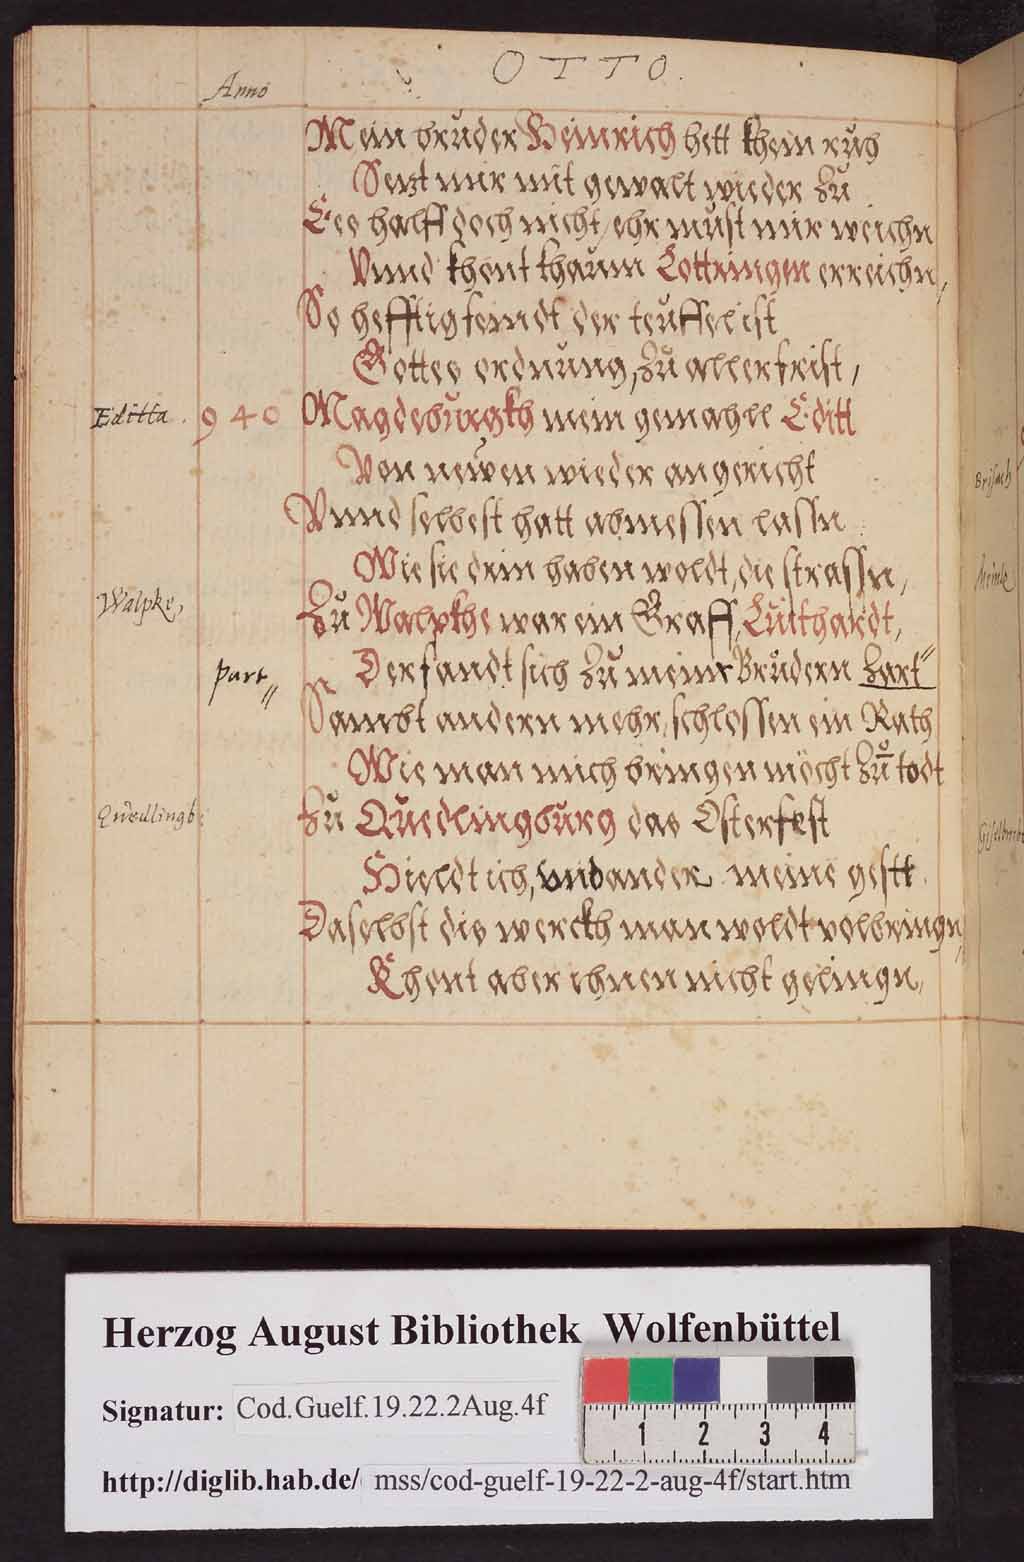 OTTO.
Anno
Mein brůder Heinrich hett khein růh
Setzt mir mit gewalt wieder Zů
Ees halff doch nicht, ehr můst mir weichn
Vnnd khont khaům Lottringen erreichn,
So hefftig feindt der teůffel ist
Gottes ordnůng, Zů aller frist,
Editta. 940 Magdebůrgkh mein gemahll Editt
Von newen wieder angericht
Vnnd selbest hatt abmessen lassn
Wie sie drin haben woldt, die strassn,
Walpke, Zů Walpkhe war ein Graff, Luithardt,
Der fandt sich Zů meinr Brůdern Zart"
part"
Sambt andern mehr, schlossen ein Rath
Wie man mich bringen möcht Zů todt
Quedlingb: Zů Quedlingbůrg das Osterfest
Hieldt ich, vnd ander meine gestt.
Daselbst dis werckh man woldt volbringn,
Khont aber ihnen nicht gelingn,
Brisach
Meinle
Giselbrecht
Herzog August Bibliothek Wolfenbüttel
Signatur: Cod.Guelf.19.22.2Aug.4f
http://diglib.hab.de/ mss/cod-guelf-19-22-2-aug-4f/start.htm
1 2 3 4